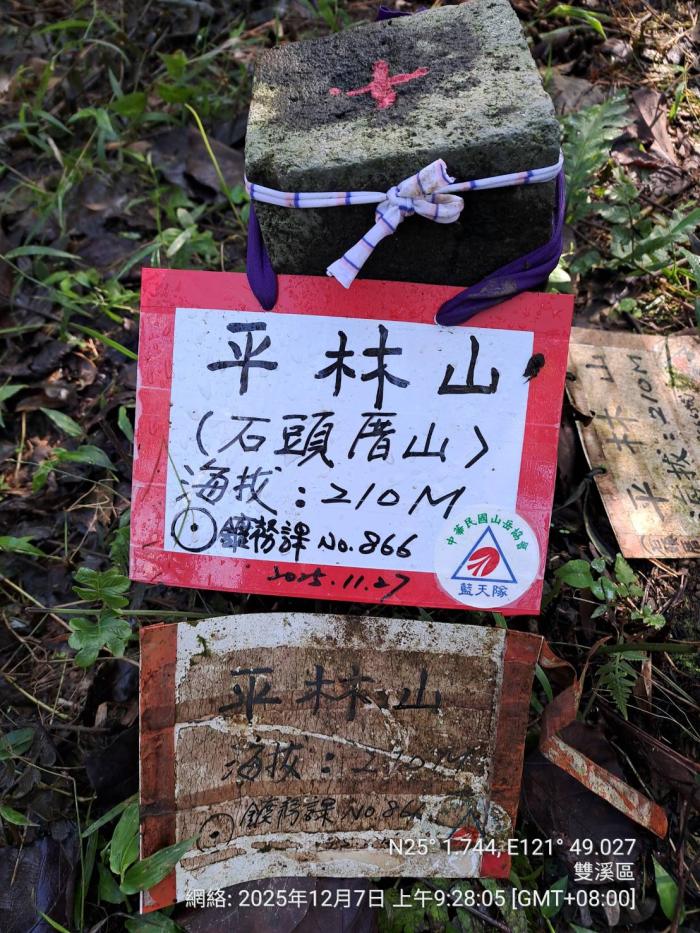 平林山
(石頭厝山)
海拔:210M
鑛務課 No.866
2025.11.27
中華民國山岳協會
藍天隊
平林山
海拔:210M
平林山
海拔:
鑛務課 No.866
N25° 1.744, E121° 49.027
雙溪區
網絡: 2025年12月7日 上午9:28:05 [GMT+08:00]